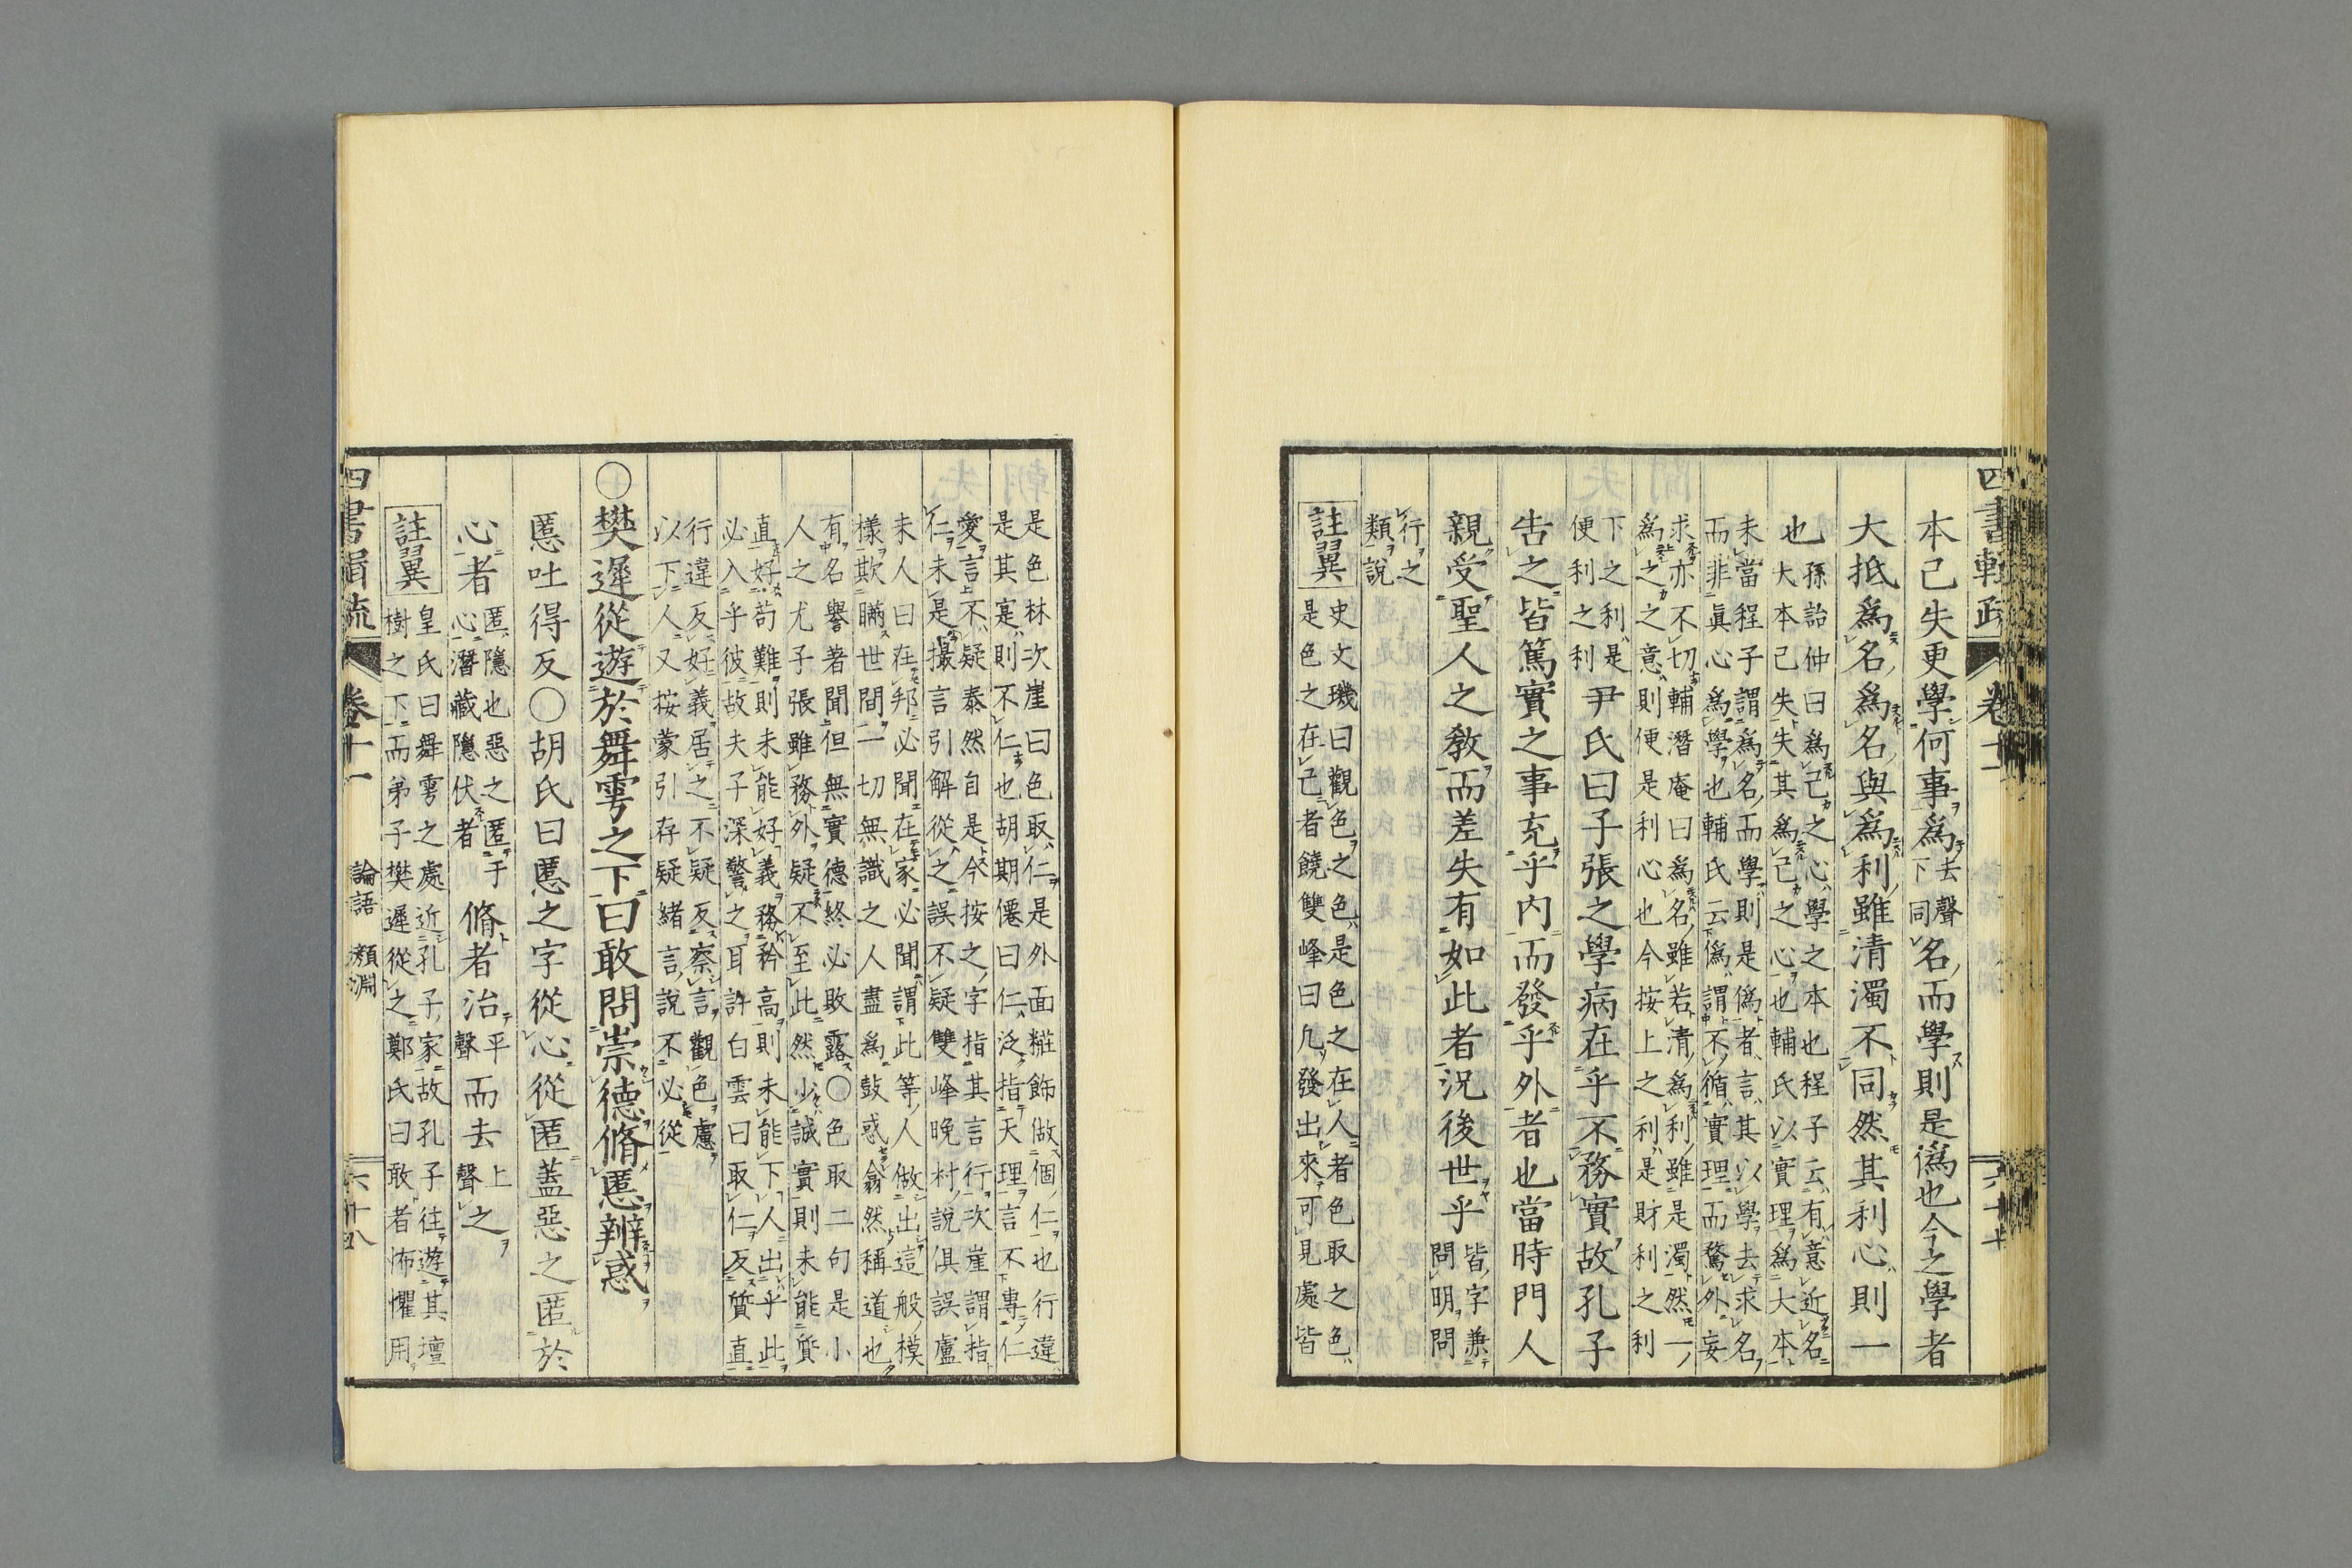 四書輯疏 卷十一 六十七
本已失更學何事爲去聲下同名而學則是僞也今之學者
大抵爲名爲名與爲利雖清濁不同然其利心則一
也孫詒仲曰爲己之心學之本也程子云有意近名
大本已失失其爲己之心也輔氏以實理爲大本
未當程子謂爲名而學則是僞者言其以學去求名
而非眞心爲學也輔氏云僞謂不循實理而騖外妄
求亦不切輔潛庵曰爲名雖若清爲利雖是濁然一
爲之之意則便是利心也今按上之利是財利之利
下之利是
便利之利尹氏曰子張之學病在乎不務實故孔子
告之皆篤實之事充乎內而發乎外者也當時門人
親受聖人之敎而差失有如此者況後世乎皆字兼謂指
問明問
行之
類說
註翼史文璣曰觀色之色是色之在人者色取之色
是色之在己者饒雙峰曰凡發出來可見處皆
是色林次崖曰色取仁是外面糚飾做個仁也行違
是其寔則不仁也胡期僊曰仁泛指天理言不專仁
愛言不疑泰然自是今按之字指其言行次崖謂指
仁未是撮言引解從之誤不疑雙峰晩村說俱誤盧
未人曰在邦必聞在家必聞謂此等人做出這般模
樣欺瞞世間一切無識之人盡爲鼓惑翕然稱道也
有名譽著聞但無實德終必敗露○色取二句是小
人之尤子張雖務外疑不至此然少誠實則未能質
直好苟難則未能好義務矜高則未能下人出乎此
必入乎彼故夫子深警之耳許白雲曰取仁反質直
行違反好義居之不疑反察言觀色慮
以下人又按蒙引存疑緒言說不必從
○樊遲從遊於舞雩之下曰敢問崇德脩慝辨惑
慝吐得反○胡氏曰慝之字從心從匿蓋惡之匿於
心者匿隱也惡之匿于
心潛藏隱伏者脩者治平聲而去上聲之
註翼皇氏曰舞雩之處近孔子家故孔子往遊其壇
樹之下而弟子樊遲從之鄭氏曰敢者怖懼用
四書輯疏 卷十一 論語 顏淵 六十八